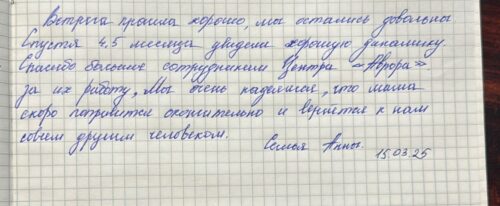 Встреча прошла хорошо, мы остались довольны
Спустя 4.5 месяца увидели хорошую динамику.
Спасибо большое сотрудникам Центра «Аврора»
за их работу, Мы очень надеемся, что мама
скоро поправится окончательно и вернется к нам
совсем другим человеком.
Семья Анны.
15.03.25